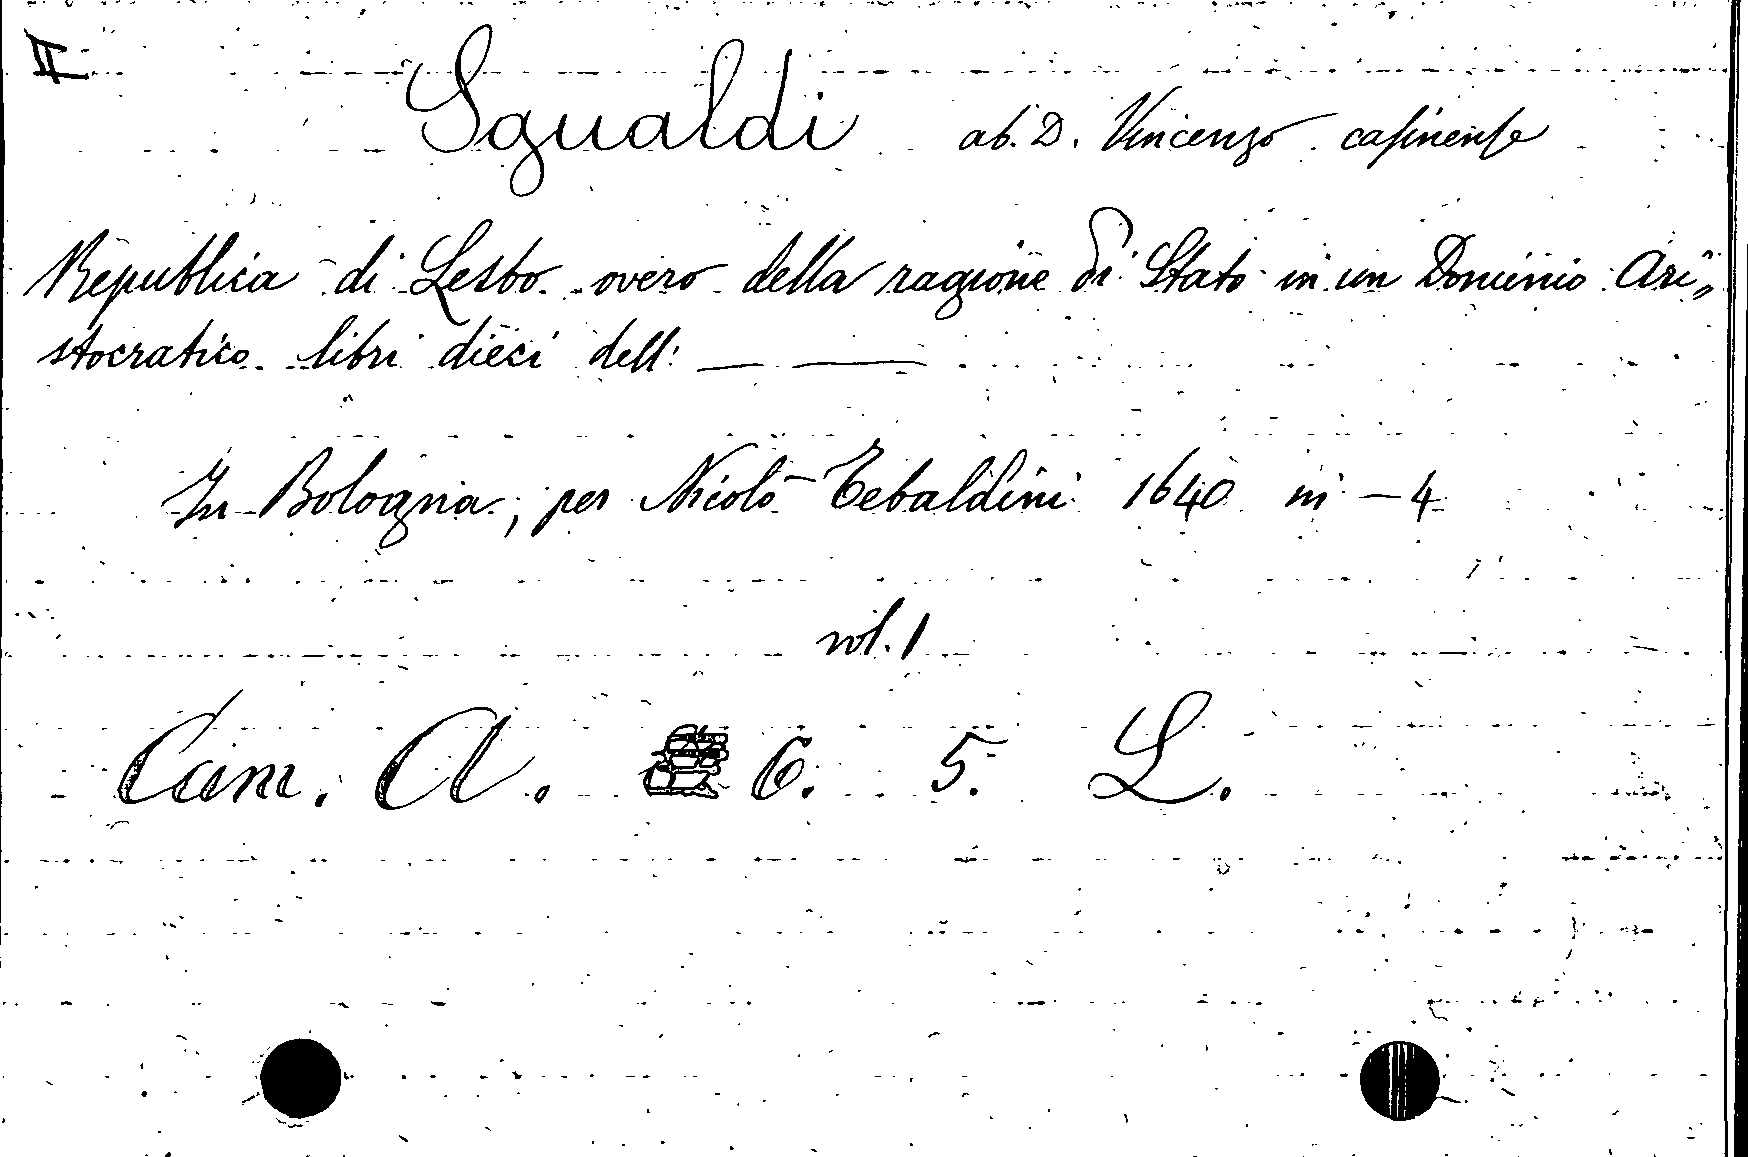 II
Sgualdi ab. D. Vincenzo casinense
Republica di Lesbo overo della ragione di Stato in un Dominio Ari„
stocratico libri dieci dell: — —
In Bologna, per Nicolò Tebaldini 1640 in - 4
vol. 1
Cam. A. 6. 5. L.